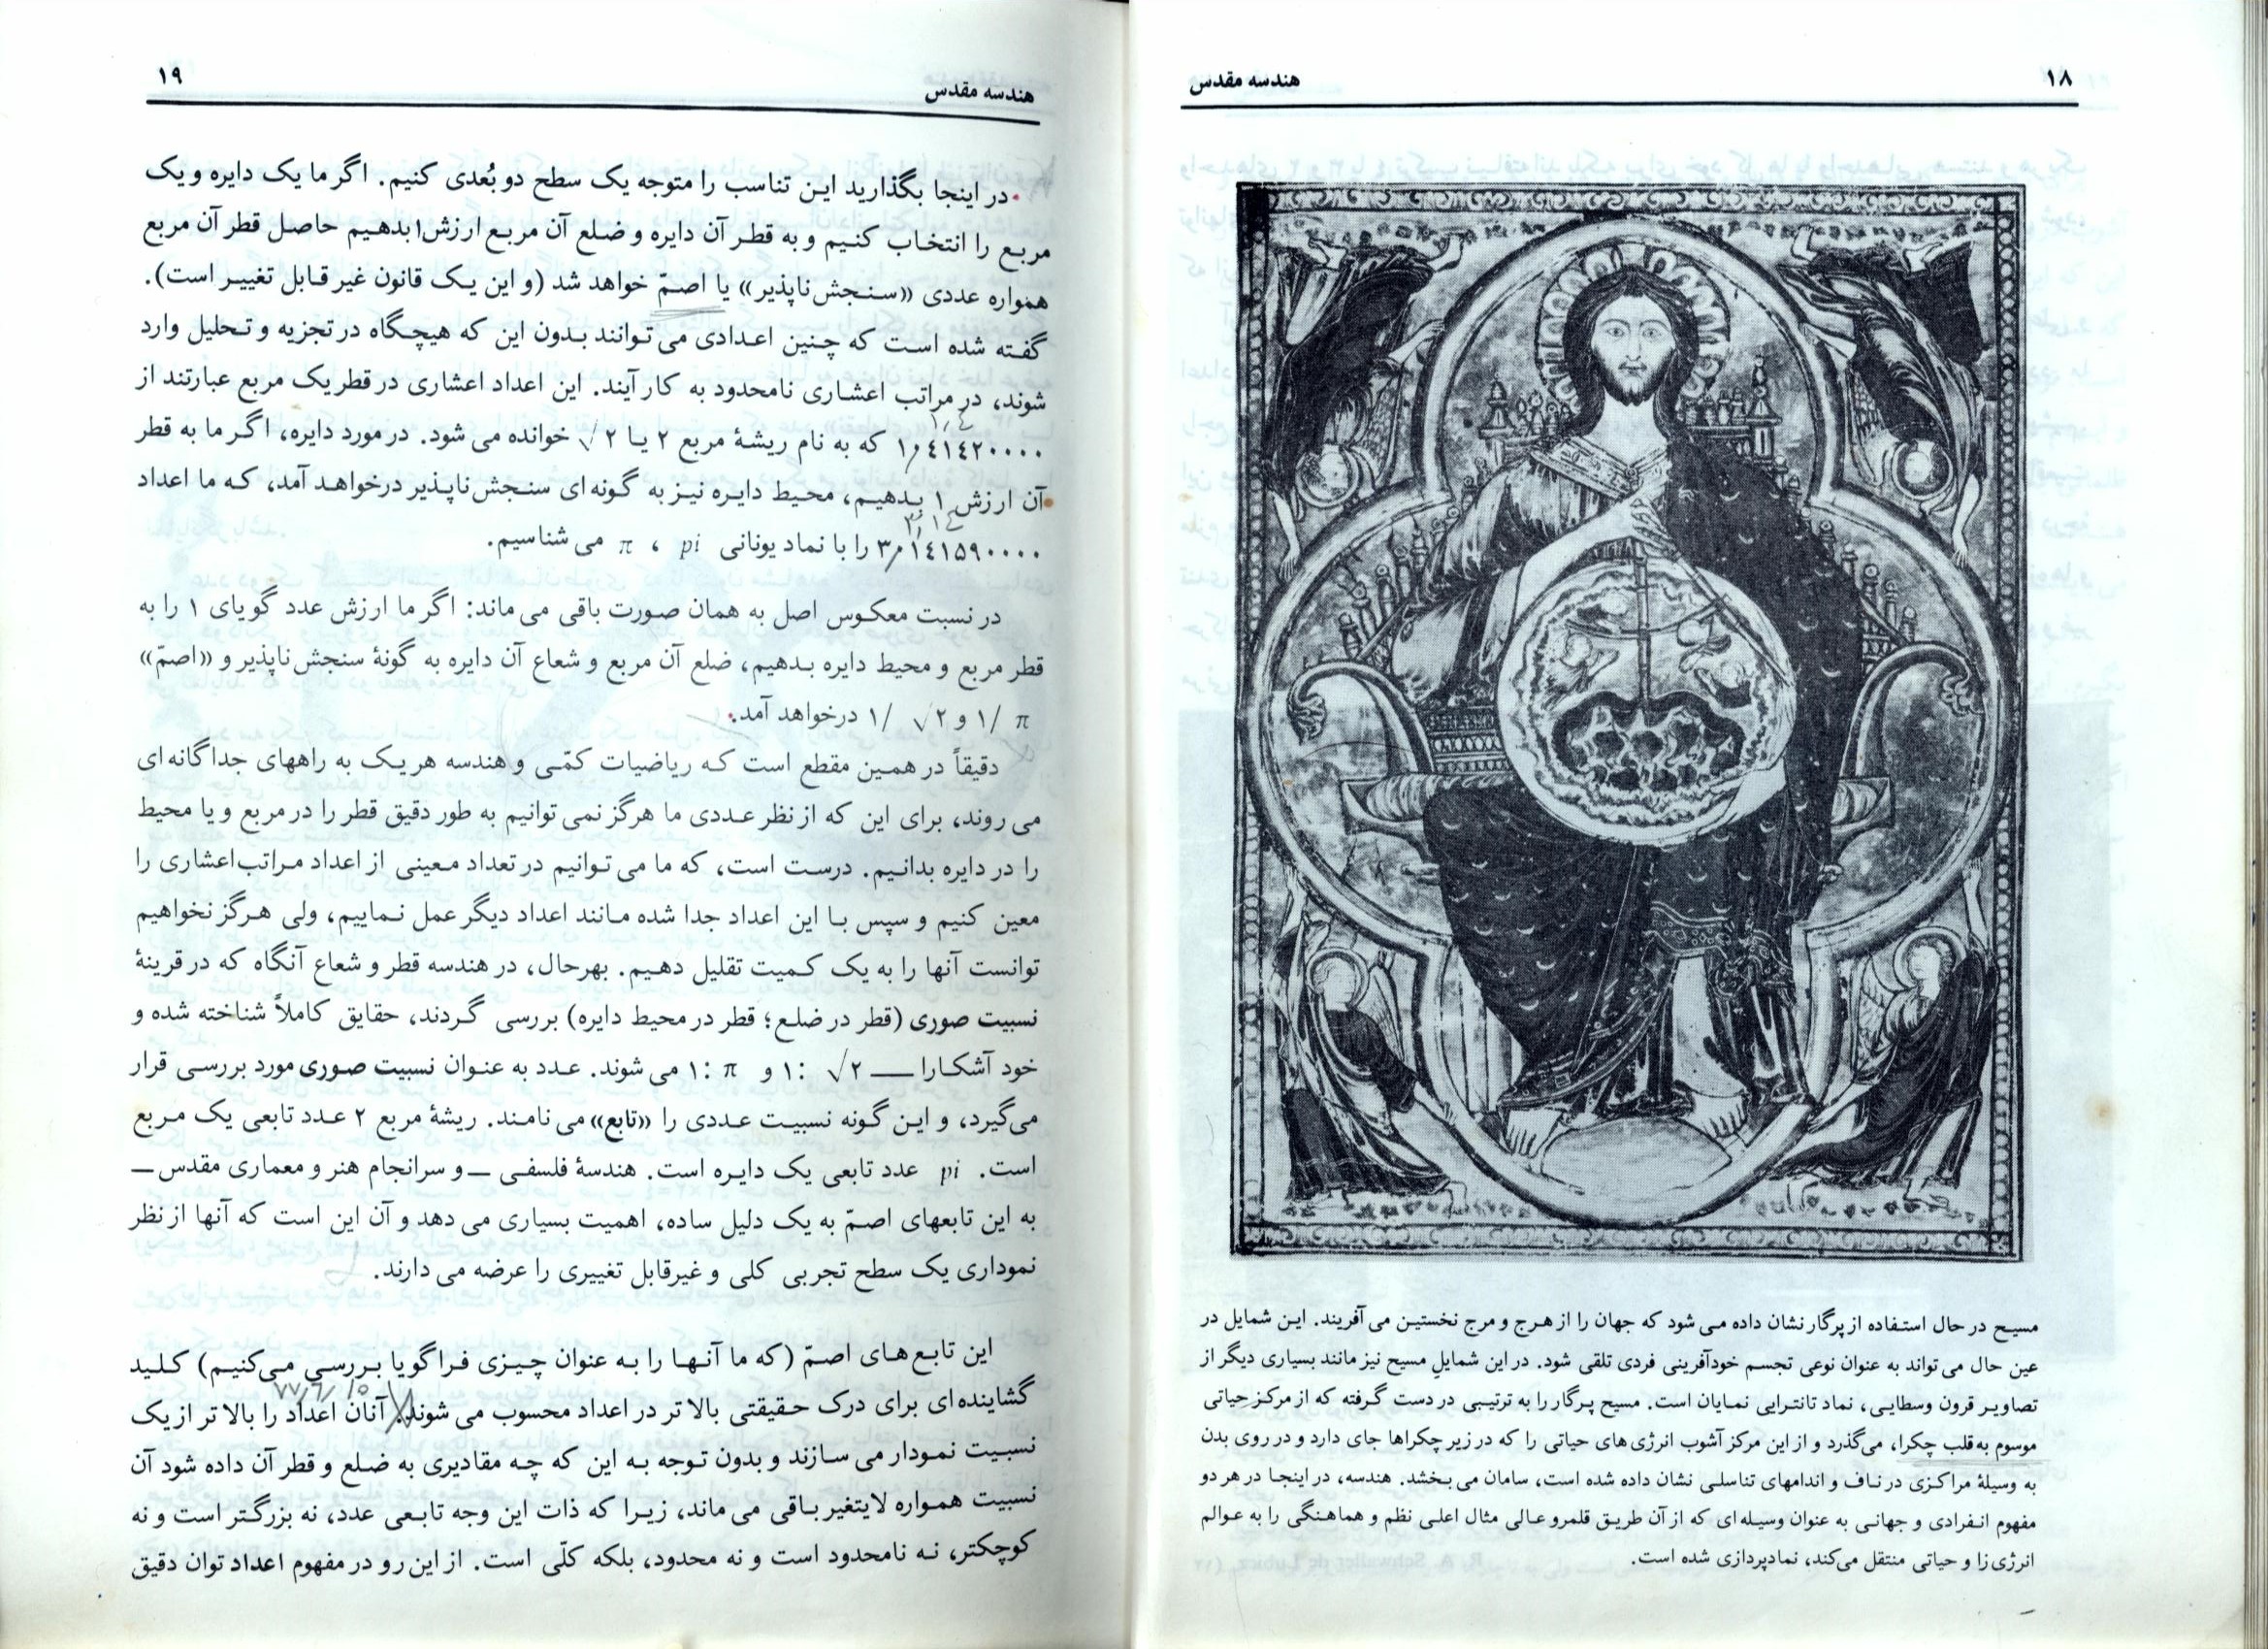 ۱۸
هندسه مقدس
مسیح در حال استفاده از پرگار نشان داده می شود که جهان را از هرج و مرج نخستین می آفریند. این شمایل در
عین حال می تواند به عنوان نوعی تجسم خودآفرینی فردی تلقی شود. در این شمایل مسیح نیز مانند بسیاری دیگر از
تصاویر قرون وسطایی، نماد تانترایی نمایان است. مسیح پرگار را به ترتیبی در دست گرفته که از مرکز حیاتی
موسوم به قلب چکرا، می گذرد و از این مرکز آشوب انرژی های حیاتی را که در زیر چکراها جای دارد و در روی بدن
به وسیلهٔ مراکزی در ناف و اندامهای تناسلی نشان داده شده است، سامان می بخشد. هندسه، در اینجا در هر دو
مفهوم انفرادی و جهانی به عنوان وسیله ای که از آن طریق قلمرو عالی مثال اعلی نظم و هماهنگی را به عوالم
انرژی زا و حیاتی منتقل می کند، نمادپردازی شده است.
هندسه مقدس
۱۹
در اینجا بگذارید این تناسب را متوجه یک سطح دو بُعدی کنیم. اگر ما یک دایره و یک
مربع را انتخاب کنیم و به قطر آن دایره و ضلع آن مربع ارزش ۱ بدهیم حاصل قطر آن مربع
همواره عددی «سنجش ناپذیر» یا اصمّ خواهد شد (و این یک قانون غیر قابل تغییر است).
گفته شده است که چنین اعدادی می توانند بدون این که هیچگاه در تجزیه و تحلیل وارد
شوند، در مراتب اعشاری نامحدود به کار آیند. این اعداد اعشاری در قطر یک مربع عبارتند از
۱,۴
۱٫۰۴۱۴۲۰۰۰۰ که به نام ریشهٔ مربع ۲ یا ۲√ خوانده می شود. در مورد دایره، اگر ما به قطر
آن ارزش ۱ بدهیم، محیط دایره نیز به گونه ای سنجش ناپذیر درخواهد آمد، که ما اعداد
۳,۱۴
۳٫۰۱۴۱۵۹۰۰۰۰ را با نماد یونانی pi ، π می شناسیم.
در نسبت معکوس اصل به همان صورت باقی می ماند: اگر ما ارزش عدد گویای ۱ را به
قطر مربع و محیط دایره بدهیم، ضلع آن مربع و شعاع آن دایره به گونهٔ سنجش ناپذیر و «اصمّ»
π /۱ و ۲√ /۱ درخواهد آمد.
دقیقاً در همین مقطع است که ریاضیات کمّی و هندسه هر یک به راههای جداگانه ای
می روند، برای این که از نظر عددی ما هرگز نمی توانیم به طور دقیق قطر را در مربع و یا محیط
را در دایره بدانیم. درست است، که ما می توانیم در تعداد معینی از اعداد مراتب اعشاری را
معین کنیم و سپس با این اعداد جدا شده مانند اعداد دیگر عمل نماییم، ولی هرگز نخواهیم
توانست آنها را به یک کمیت تقلیل دهیم. بهرحال، در هندسه قطر و شعاع آنگاه که در قرینهٔ
نسبیت صوری (قطر در ضلع؛ قطر در محیط دایره) بررسی گردند، حقایق کاملاً شناخته شده و
خود آشکارا — ۲√ :۱ و π :۱ می شوند. عدد به عنوان نسبیت صوری مورد بررسی قرار
می گیرد، و این گونه نسبیت عددی را «تابع» می نامند. ریشهٔ مربع ۲ عدد تابعی یک مربع
است. pi عدد تابعی یک دایره است. هندسهٔ فلسفی — و سرانجام هنر و معماری مقدس —
به این تابعهای اصمّ به یک دلیل ساده، اهمیت بسیاری می دهد و آن این است که آنها از نظر
نموداری یک سطح تجربی کلی و غیرقابل تغییری را عرضه می دارند.
این تابع های اصمّ (که ما آنها را به عنوان چیزی فراگویا بررسی می کنیم) کلید
گشاینده ای برای درک حقیقتی بالا تر در اعداد محسوب می شوند. آنان اعداد را بالا تر از یک
نسبیت نمودار می سازند و بدون توجه به این که چه مقادیری به ضلع و قطر آن داده شود آن
نسبیت همواره لایتغیر باقی می ماند، زیرا که ذات این وجه تابعی عدد، نه بزرگتر است و نه
کوچکتر، نه نامحدود است و نه محدود، بلکه کلّی است. از این رو در مفهوم اعداد توان دقیق